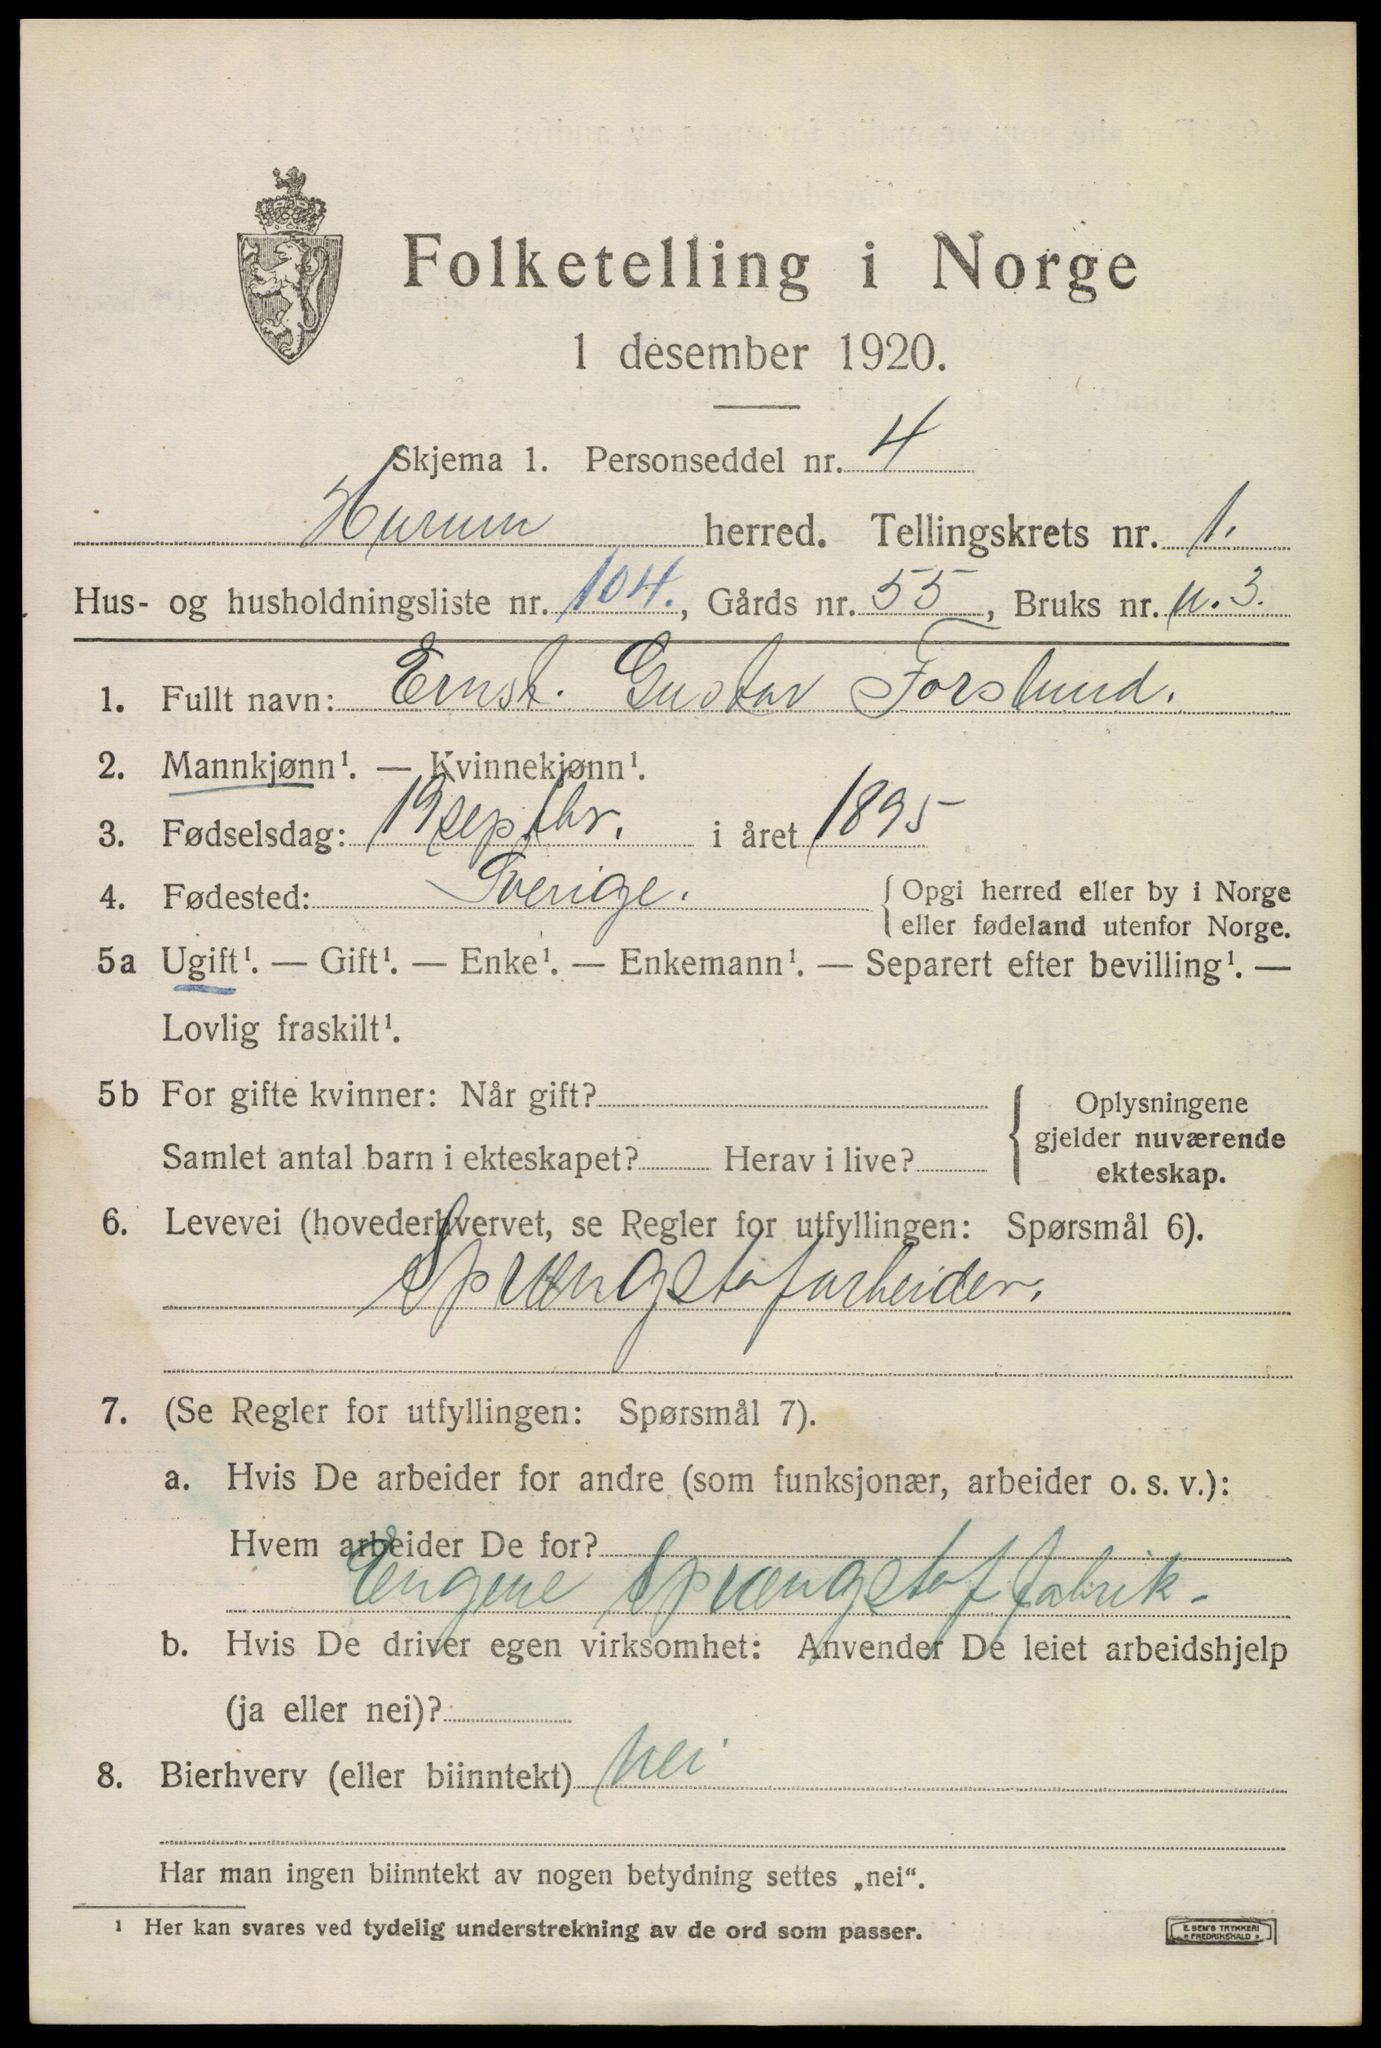 Folketelling i Norge
1 desember 1920.
Skjema 1. Personseddel nr. 4
Hurum herred. Tellingskrets nr. 1.
Hus- og husholdningsliste nr. 104., Gårds nr. 55, Bruks nr. n. 3.
1. Fullt navn: Ernst. Gustav Forslund.
2. Mannkjønn¹. — Kvinnekjønn¹.
3. Fødselsdag: 19 septbr. i året 1895
4. Fødested: Sverige. { Opgi herred eller by i Norge
eller fødeland utenfor Norge.
5a Ugift¹. — Gift¹. — Enke¹. — Enkemann¹. — Separert efter bevilling¹. —
Lovlig fraskilt¹.
5b For gifte kvinner: Når gift?
Samlet antal barn i ekteskapet? Herav i live?
{ Oplysningene
gjelder nuværende
ekteskap.
6. Levevei (hovederhvervet, se Regler for utfyllingen: Spørsmål 6).
Sprængstofarbeider.
7. (Se Regler for utfyllingen: Spørsmål 7).
a. Hvis De arbeider for andre (som funksjonær, arbeider o. s. v.):
Hvem arbeider De for?
Engene Sprængstoffabrik-
b. Hvis De driver egen virksomhet: Anvender De leiet arbeidshjelp
(ja eller nei)?
8. Bierhverv (eller biinntekt) nei
Har man ingen biinntekt av nogen betydning settes „nei“.
¹ Her kan svares ved tydelig understrekning av de ord som passer.
E. SEM'S TRYKKERI
FREDRIKSHALD